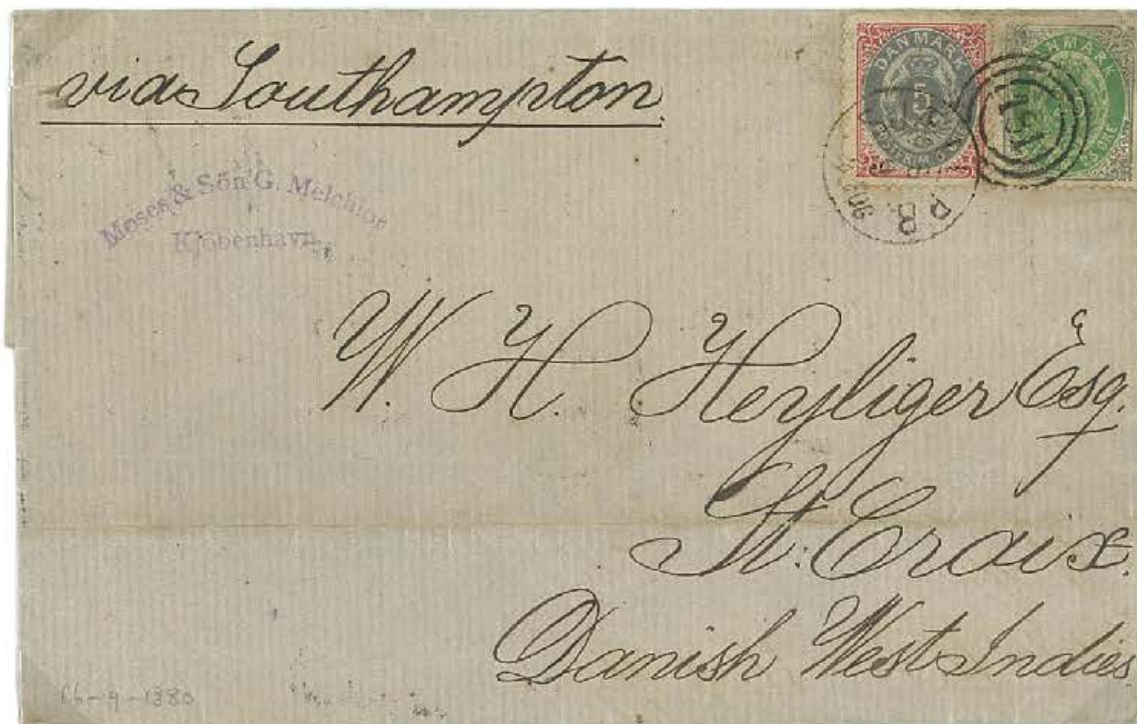 via Southampton
Moses & Sön G. Melchior
Kjöbenhavn
DANMARK
5
DANMARK
ØRE
151
P.B.
W. H. Heyliger Esq.
St. Croix.
Danish West Indies
16-9-1880